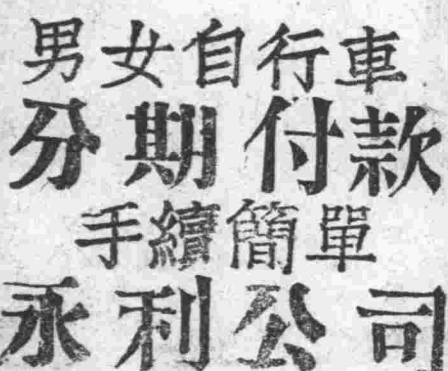 男女自行車
分期付款
手續簡單
永利公司